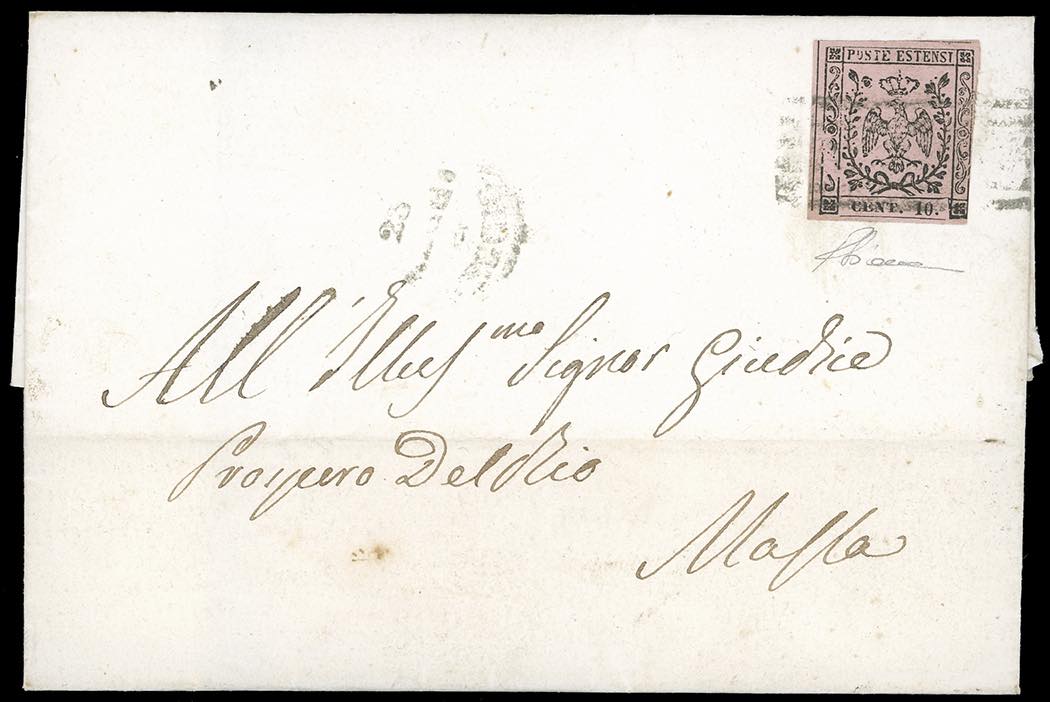 POSTE ESTENSI
CENT. 10.
23
All' Illus.mo Signor Giudice
Prospero Del Rio
Massa